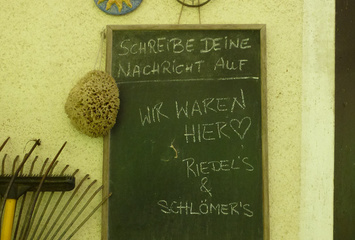 SCHREIBE DEINE
NACHRICHT AUF
WIR WAREN
HIER♡
RIEDEL'S
&
SCHLÖMER'S